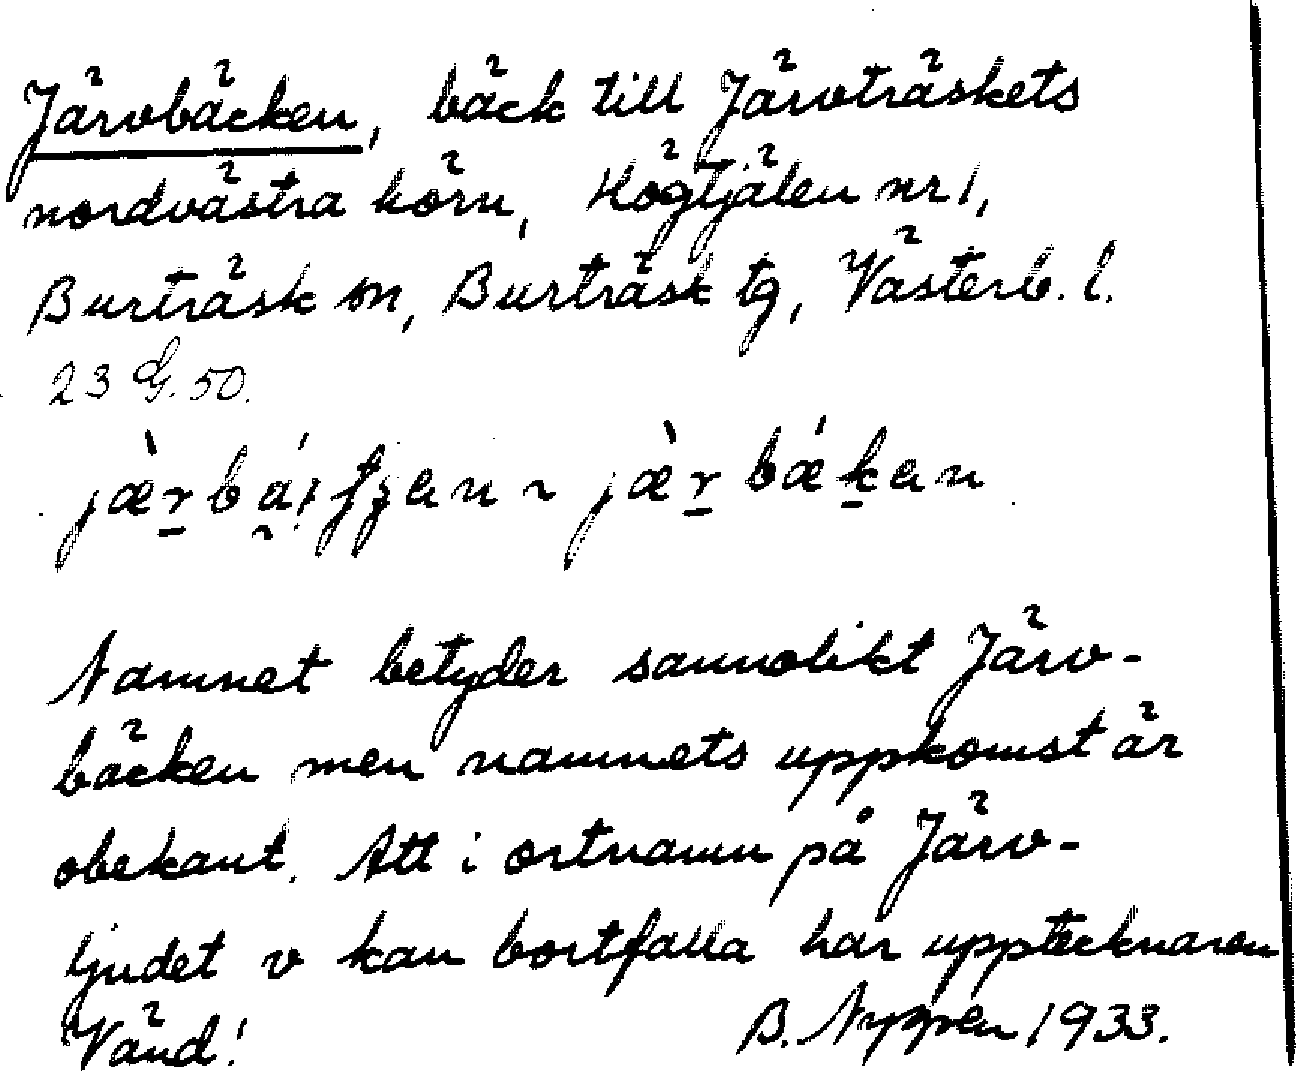 Järvbäcken, bäck till Järvträskets
nordvästra hörn, Högtjälen nr 1,
Burträsk sn, Burträsk tg, Västerb. l.
23 G. 50.
jær bæken
Namnet betyder sannolikt Järv-
bäcken men namnets uppkomst är
obekant. Att i ortnamn på Järv-
ljudet v kan bortfalla har upptecknaren
Vänd! B. Nygren 1933.